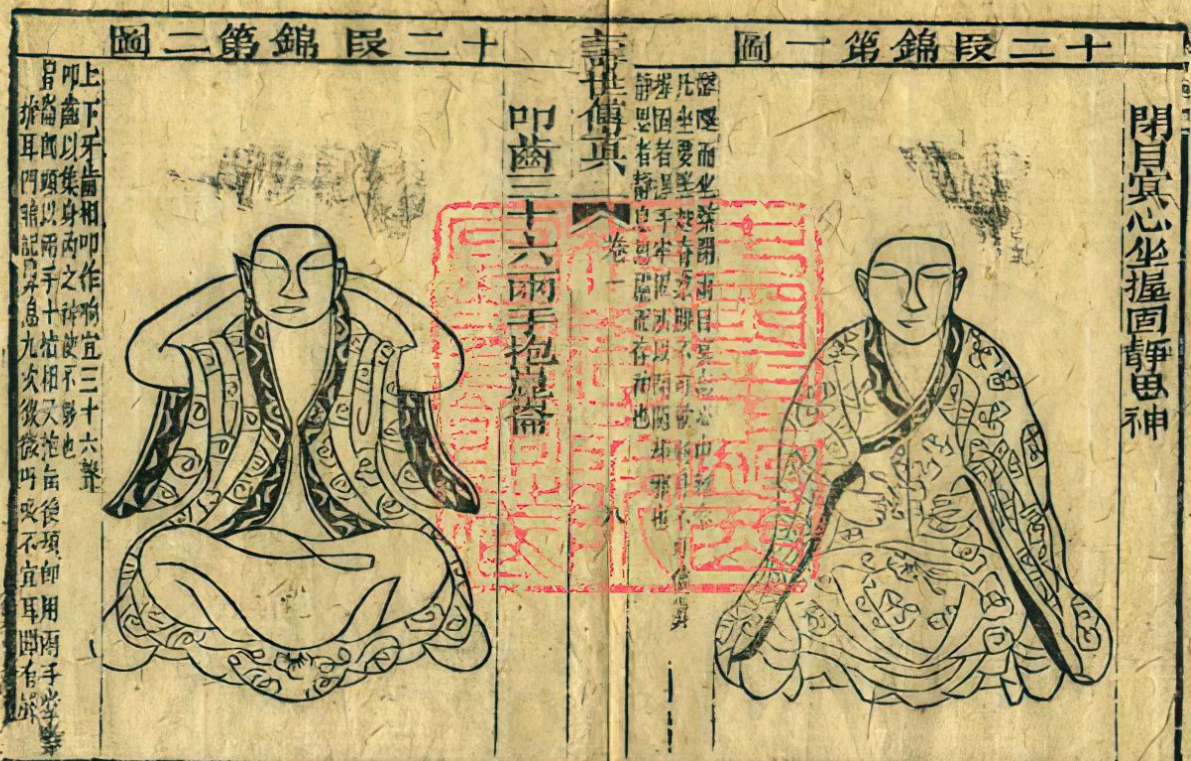 十二段錦第一圖
閉目冥心坐握固靜思神
盤腿而坐緊閉兩目冥心中
凡坐要竪起脊腰不可軟弱身不可倚靠
握固者握手牢固閉關却邪也
靜思者靜息思慮而存神也
壽世傳真
卷一
八
十二段錦第二圖
叩齒三十六兩手抱崑崙
上下牙齒相叩作响宜三十六聲
叩齒以集身內之神使不散也
崑崙即頭以兩手十指相叉抱後項即用兩手掌緊
掩耳門暗記鼻息九次微微呼吸不宜耳聞有聲